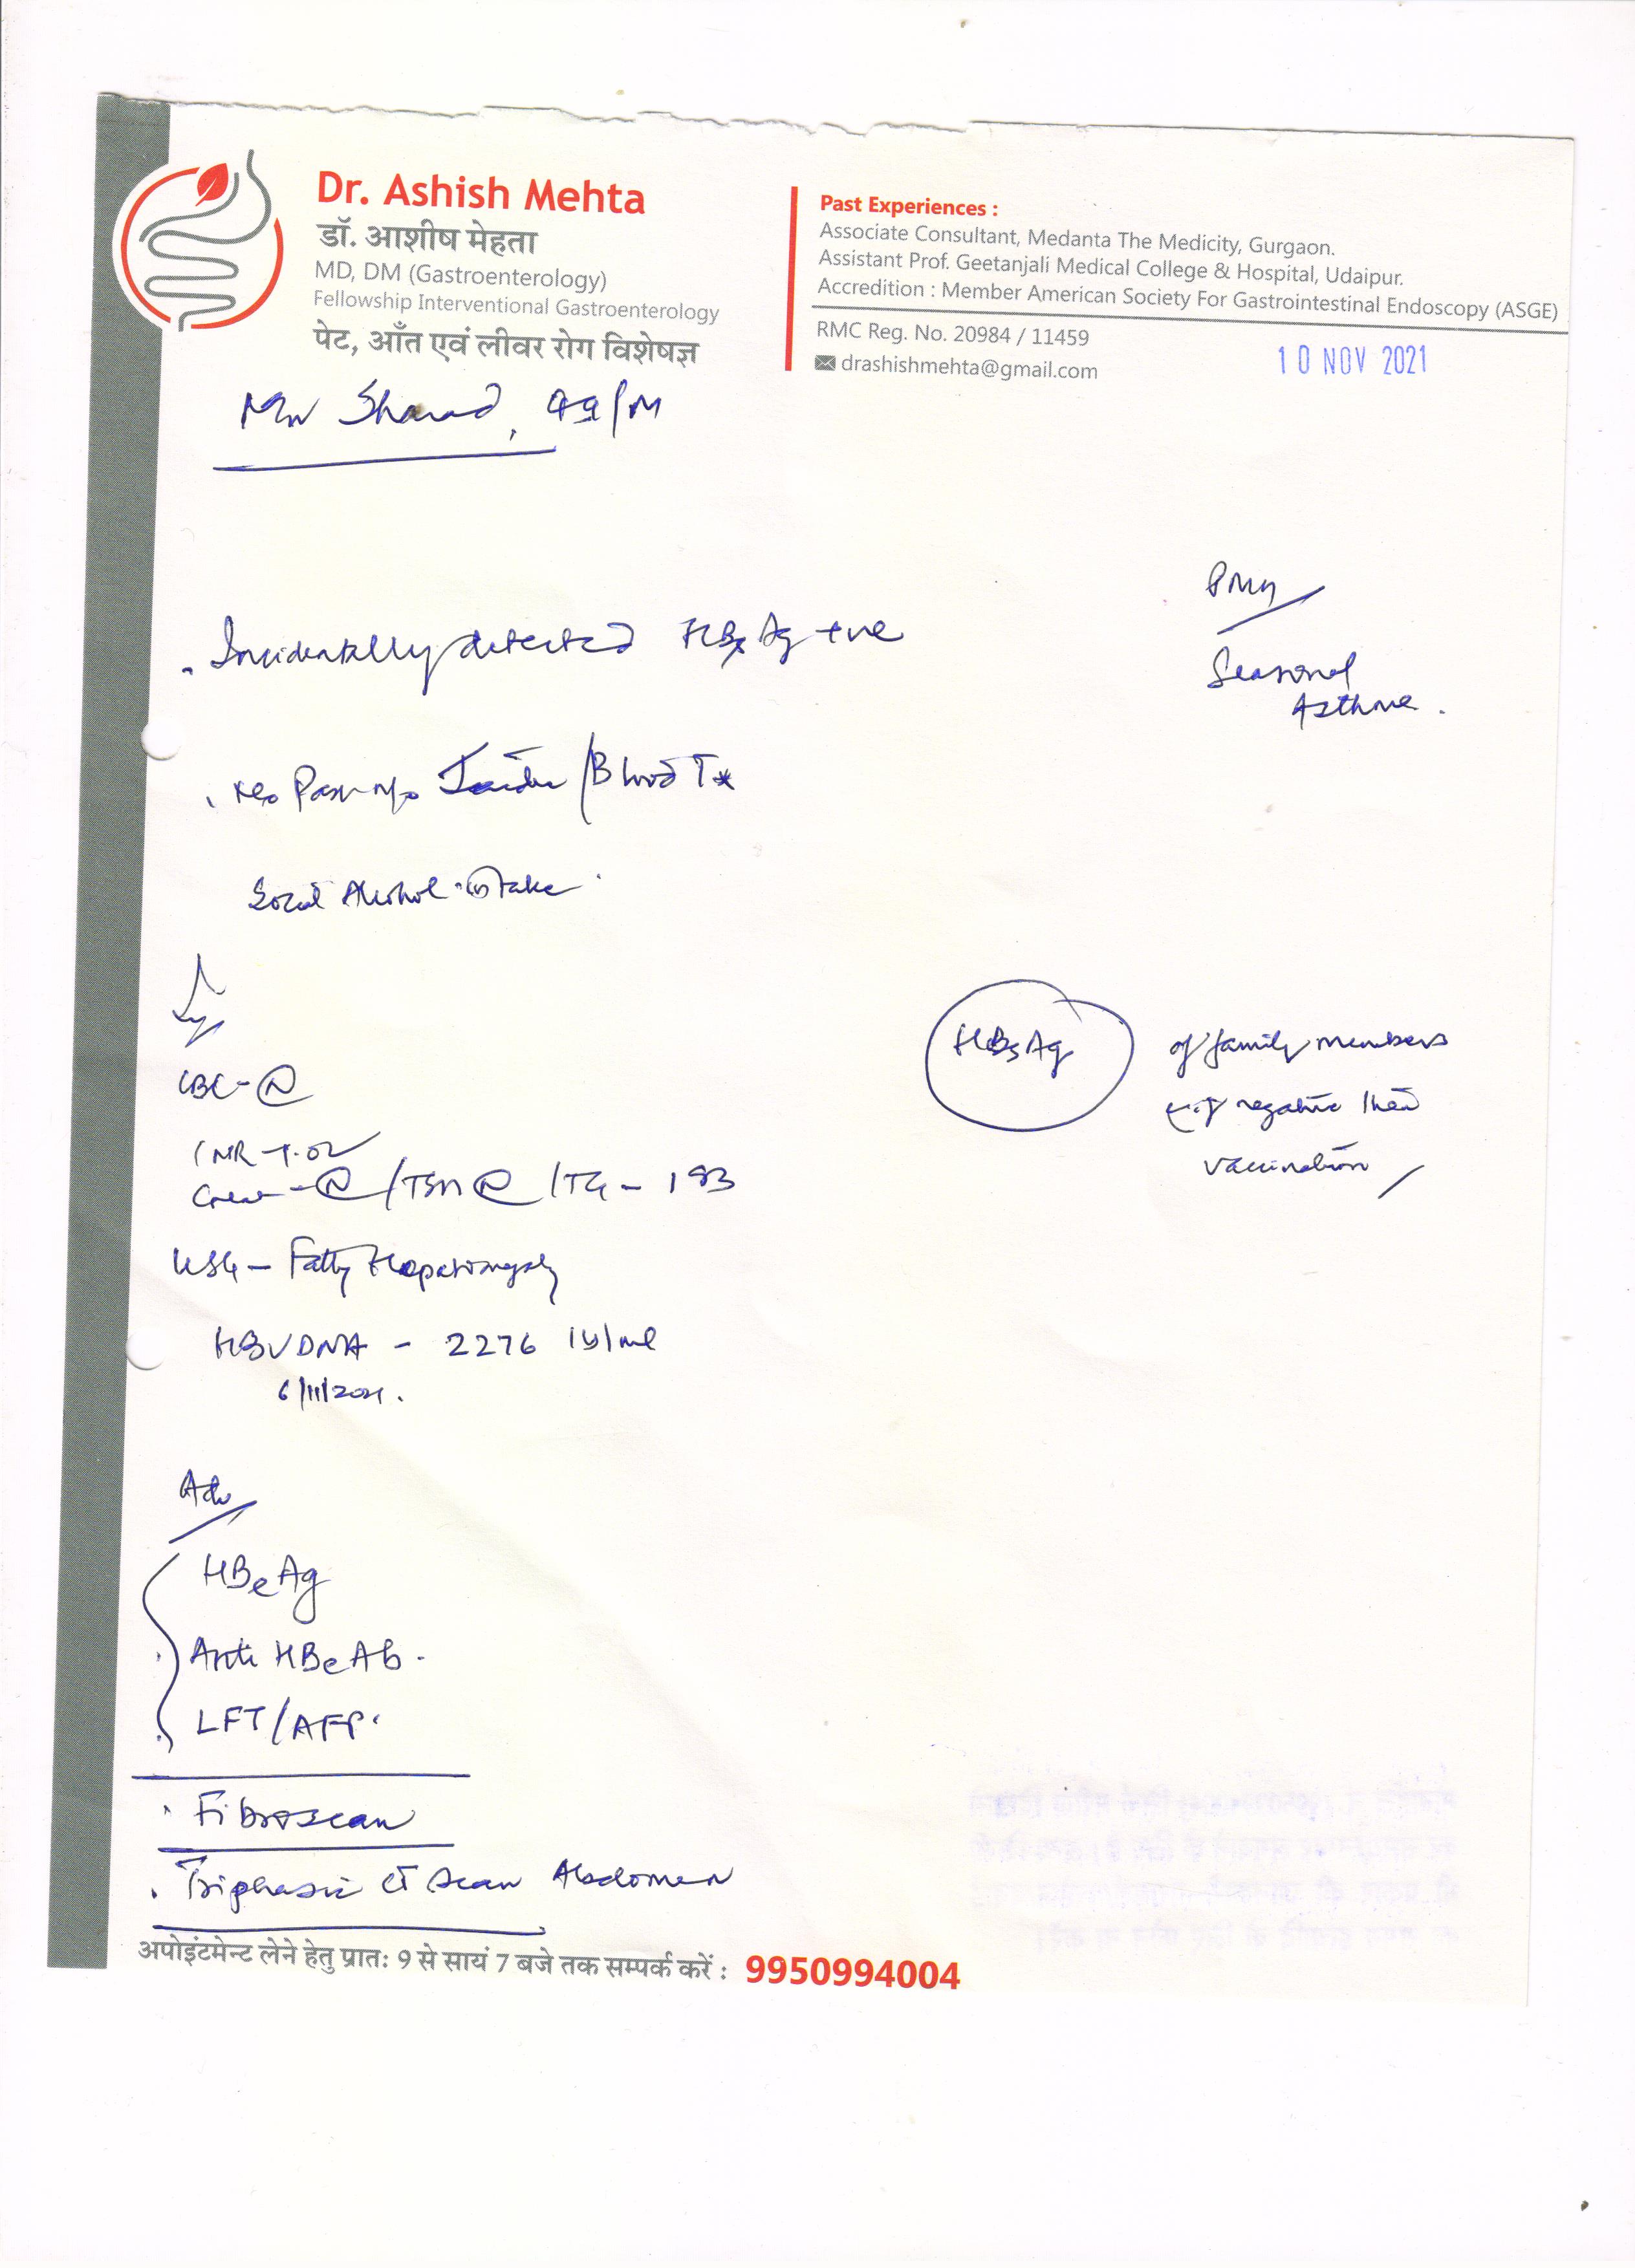 Dr. Ashish Mehta
डॉ. आशीष मेहता
MD, DM (Gastroenterology)
Fellowship Interventional Gastroenterology
पेट, आँत एवं लीवर रोग विशेषज्ञ
Past Experiences :
Associate Consultant, Medanta The Medicity, Gurgaon.
Assistant Prof. Geetanjali Medical College & Hospital, Udaipur.
Accredition : Member American Society For Gastrointestinal Endoscopy (ASGE)
RMC Reg. No. 20984 / 11459
drashishmehta@gmail.com
10 NOV 2021
Sharad, /M
Seasonal
Asthma.
. Incidentally detected HBsAg +ve
No Past H/o /Blood Tx
Social Alcohol intake
CBC - N
INR - 1.02
Creat - N /TSH N /TG - 193
USG - Fatty Hepatomegaly
HBV DNA - 2276 IU/ml
6/11/2021.
HBsAg of family members
if negative then
vaccination
Adv
HBeAg
Anti HBeAb.
LFT/AFP.
. Fibroscan
. Triphasic CT Scan Abdomen
अपोइंटमेन्ट लेने हेतु प्रातः 9 से सायं 7 बजे तक सम्पर्क करें : 9950994004